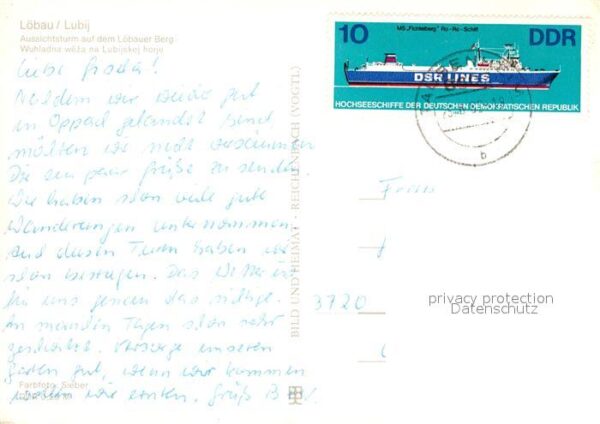 Löbau / Lubij
Aussichtsturm auf dem Löbauer Berg
Wuhladna wěža na Lubijskej horje
Liebe
Nachdem wir wieder gut
in Oppach gelandet sind
möchten wir nicht versäumen
Die ein paar Grüße zu senden.
Wir haben schon viele gute
Wanderungen unternommen
Auf diesen Turm haben wir
schon bestiegen. Das Wetter ist
für uns genau das richtige.
An manchen Tagen schon sehr
Versorge unseren
Garten gut, wenn wir kommen
wollen wir ernten. Grüß
Farbfoto: Sieber
BILD UND HEIMAT · REICHENBACH (VOGTL)
MS „Fichtelberg" Ro-Ro-Schiff
10 DDR
DSR LINES
HOCHSEESCHIFFE DER DEUTSCHEN DEMOKRATISCHEN REPUBLIK
b
Frau
3720
privacy protection
Datenschutz